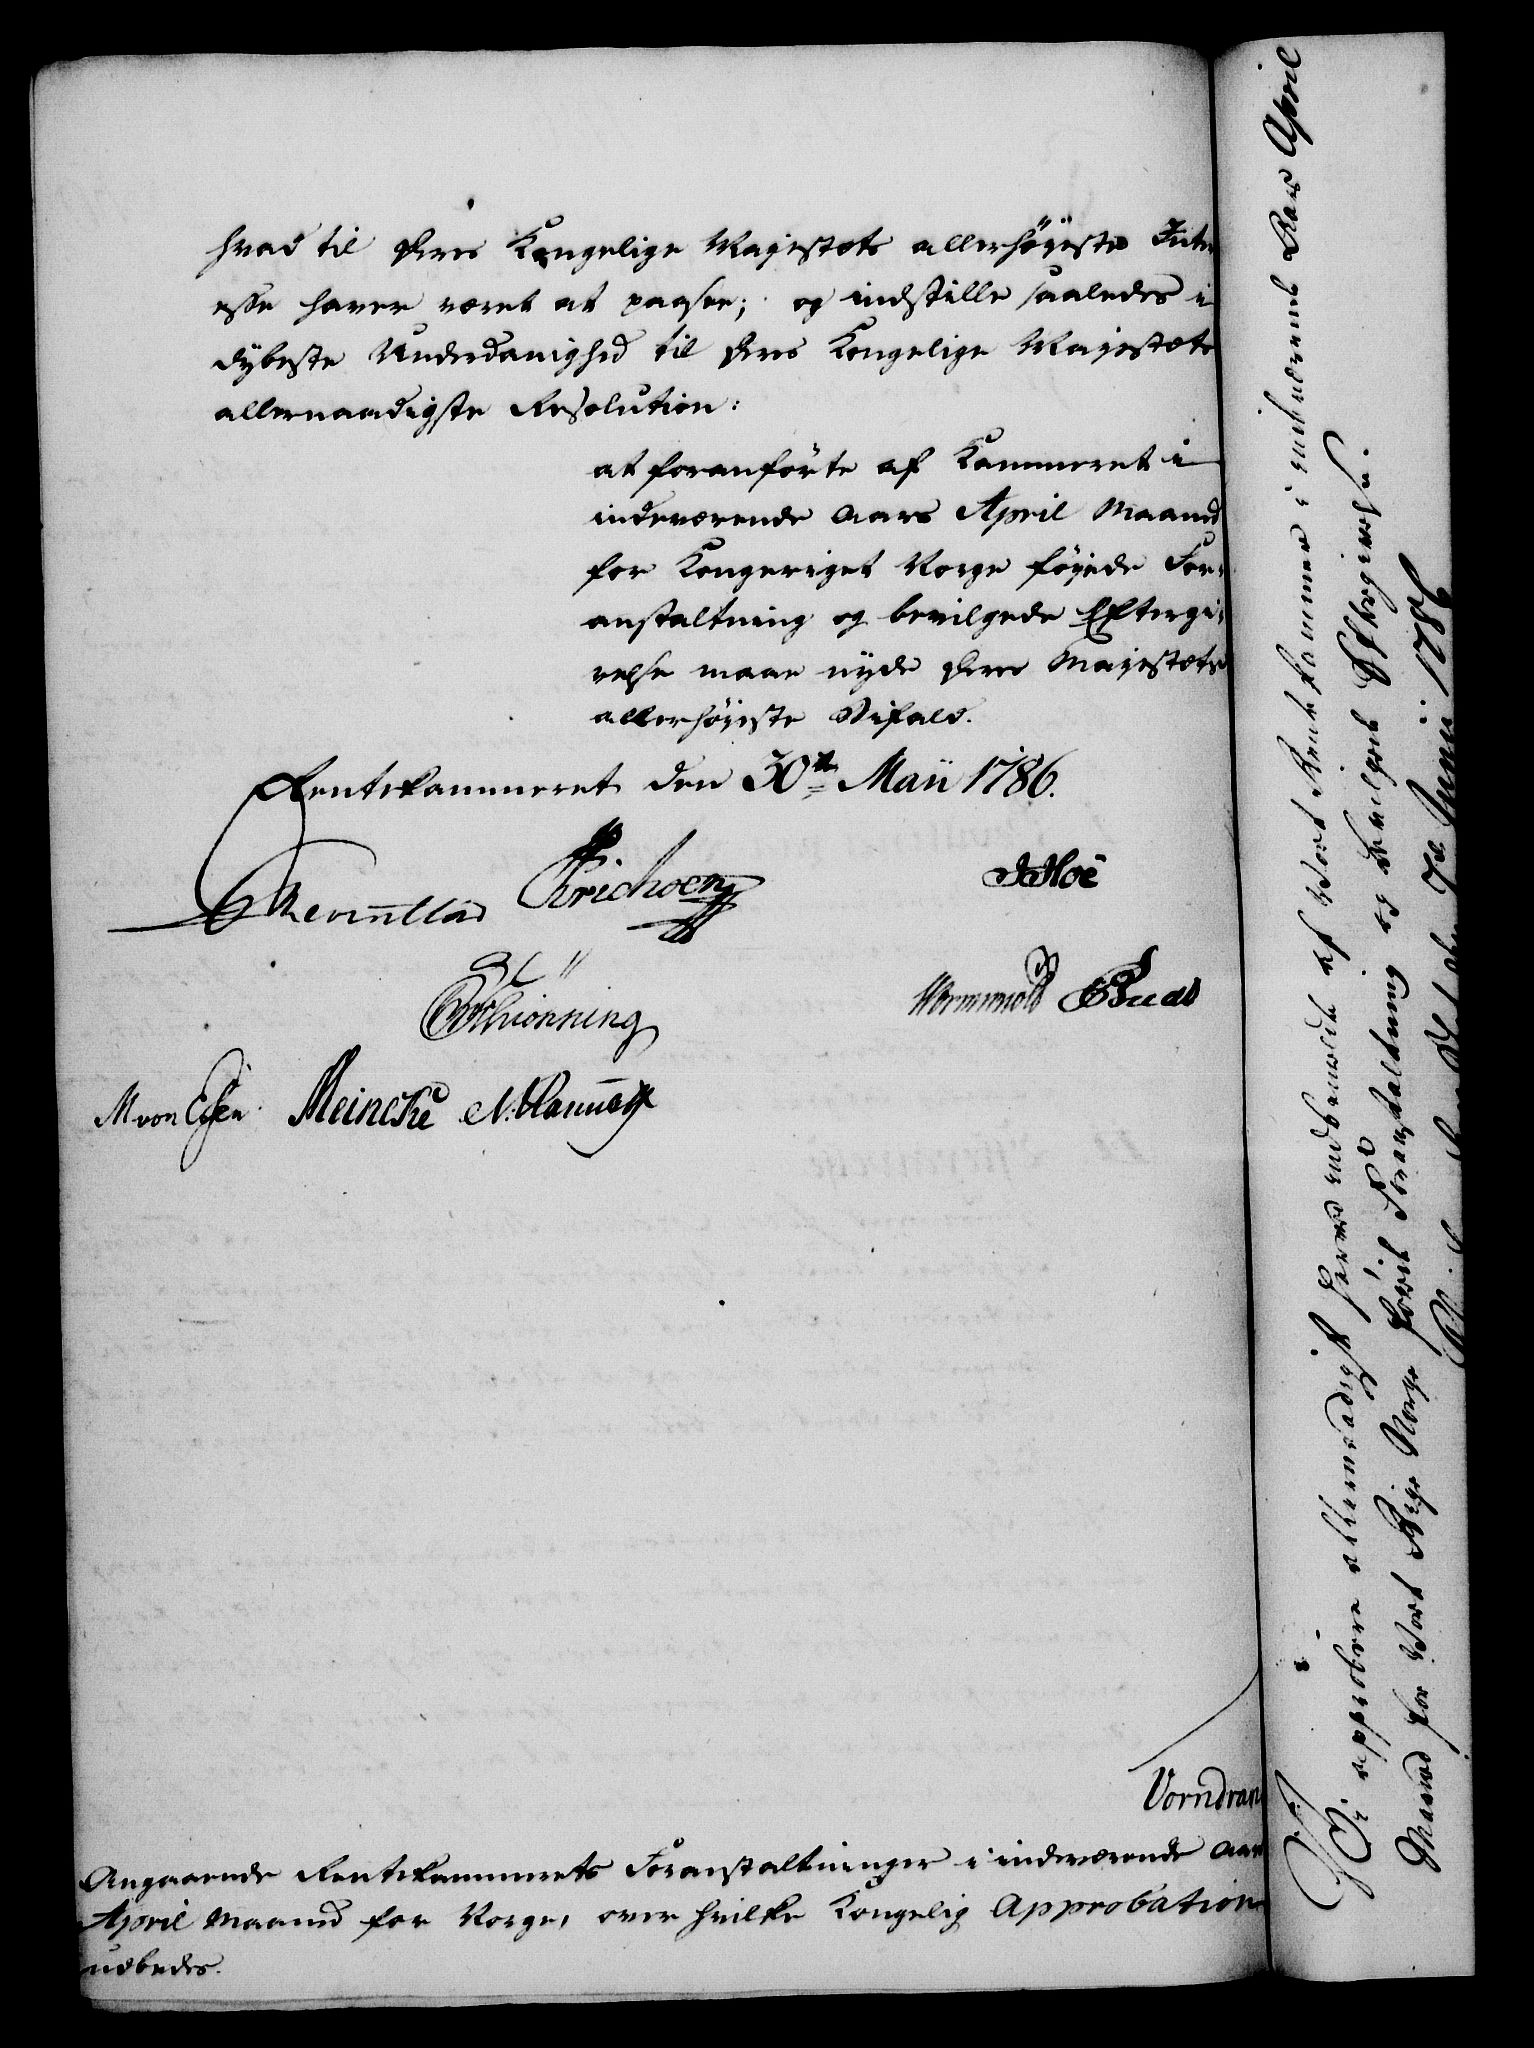 hvad til Deres Kongelige Majestæts allerhöyeste Inter
esse haver været at paasee; og indstille saaledes i
dybeste Underdanighed til Deres Kongelige Majestæts
allernaadigste Resolution:
at foranförte af Kammeret i
indeværende Aars April Maaned
for Kongeriget Norge föyede For-
anstaltning og bevilgede Eftergi-
velse maae nyde Deres Majestæts
allerhöyeste Bifald.
Rentekammeret den 30te Maii 1786.
Reventlau Erichsen JHoë
Schiönning Wormskiold Bueds
M von Essen Meincke
Vorndran
Angaaende Rentekammerets Foranstaltninger i indeværende Aars
April Maaned for Norge, over hvilke Kongelig Approbation
udbedes.
Vi approbere allernaadigst herved indbemeldte af Vort Rentekammer i indeværende Aars April
Maaned for Vort Rige Norge föyet Foranstaltning og bevilget Eftergivelse.
den 7de Junii 1786